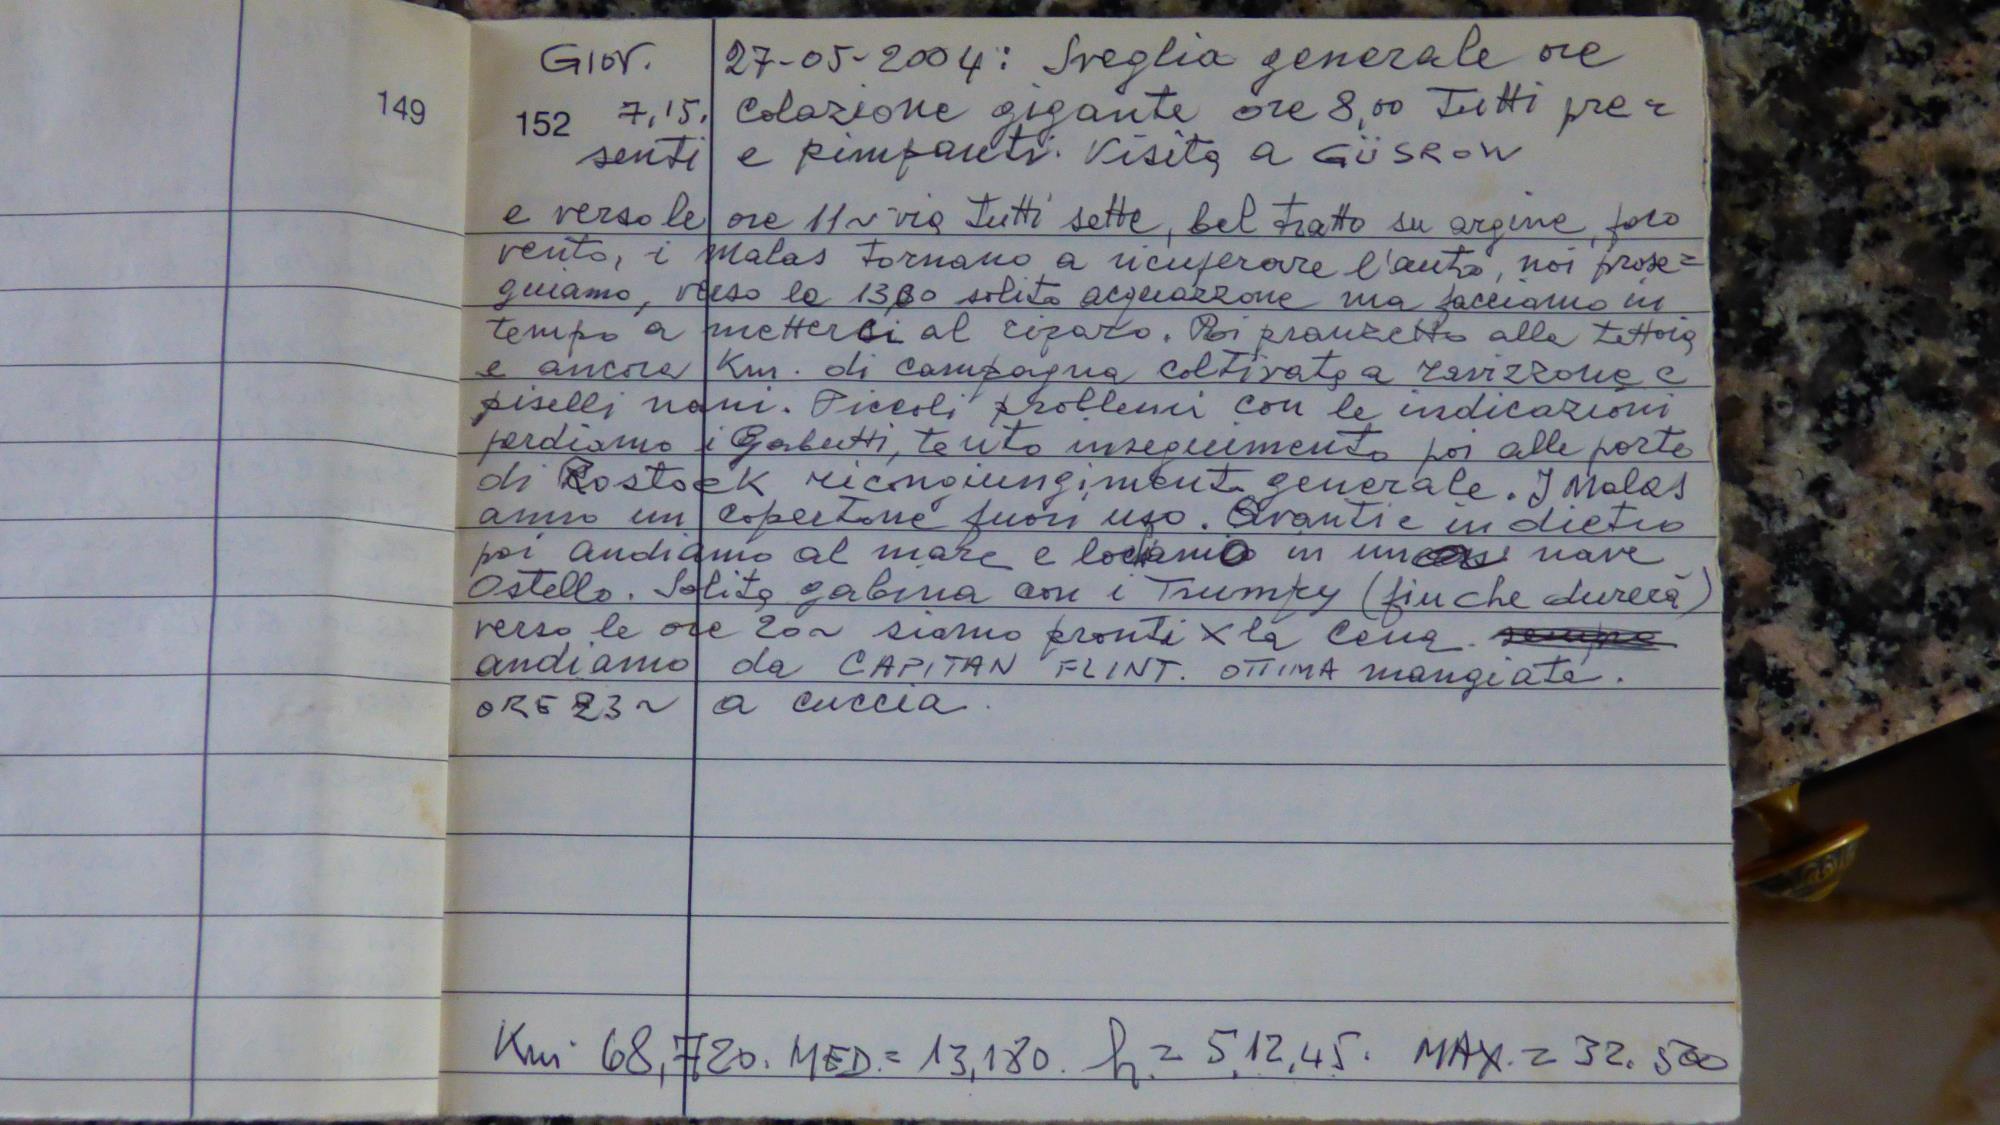 149
GIOV. 27-05-2004: Sveglia generale ore
152 7,15. colazione gigante ore 8,00 Tutti pre=
senti e pimpanti. Visita a GÜSROW
e verso le ore 11~ via tutti sette, bel tratto su argine, poco
vento, i Malas tornano a ricuperare l'auto, noi prose=
guiamo, verso le 1330 solito acquazzone ma facciamo in
tempo a metterci al riparo. Poi pranzetto alla tettoia
e ancora Km. di campagna coltivata a ravizzone e
piselli nani. Piccoli problemi con le indicazioni
perdiamo i Gabutti, tento inseguimento poi alle porte
di Rostock ricongiungimento generale. I Malas
anno un copertone fuori uso. Avanti e indietro
poi andiamo al mare e in un nave
Ostello. Solita gabina con i Trumpy (finche durerà)
verso le ore 20~ siamo pronti X la cena.
andiamo da CAPITAN FLINT. OTTIMA mangiata.
ORE 23~ a cuccia.
Km. 68,720. MED.= 13,180. h.= 5,12,45. MAX.= 32.500